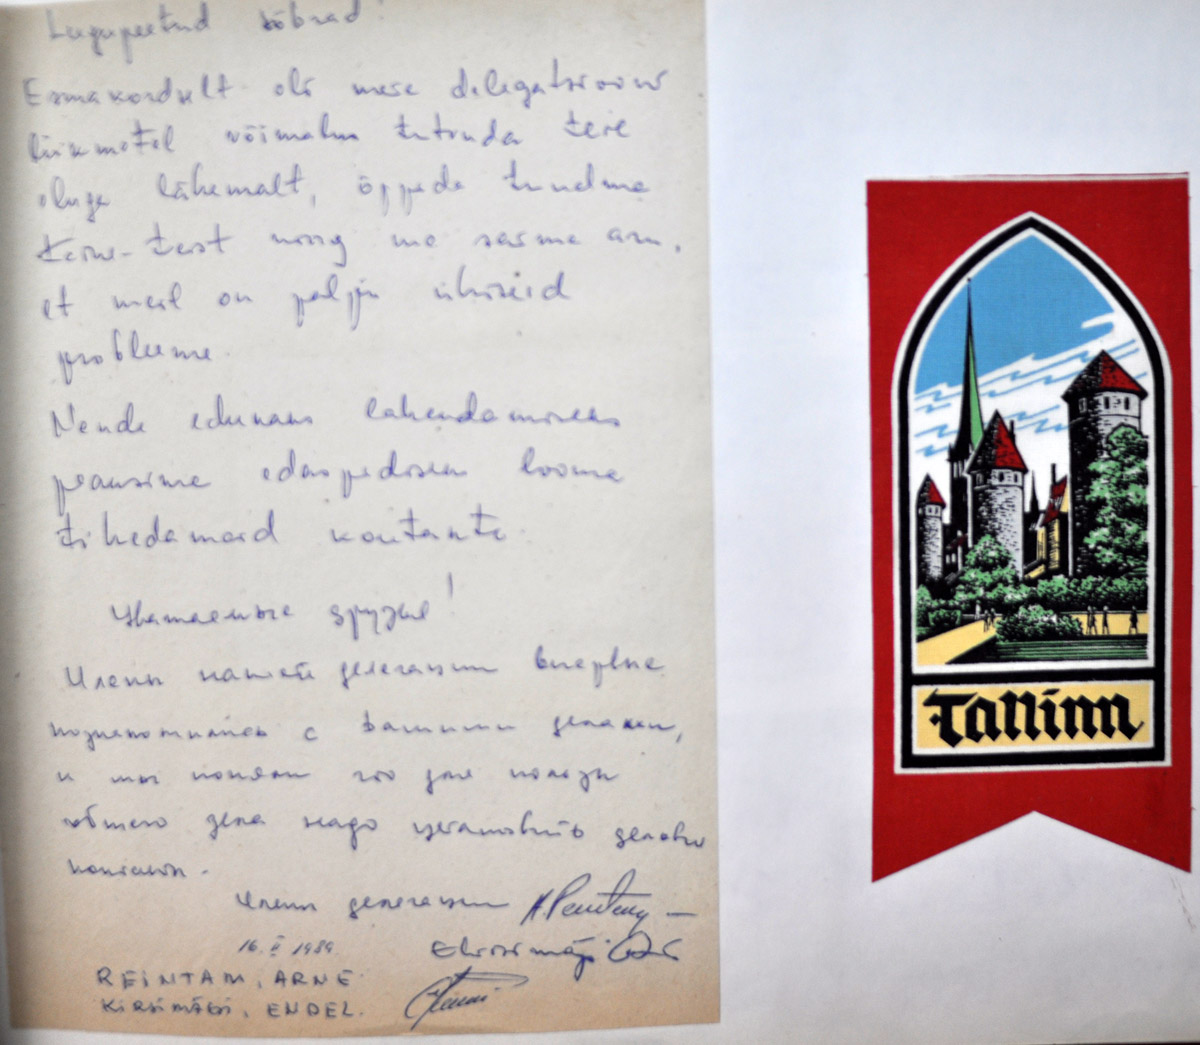 Lugupeetud sõbrad!
Esmakordselt oli meie delegatsiooni
liikmetel võimalus tutvuda teie
eluga lähemalt, õppida tundma
teie-teist ning me saime aru,
et meil on palju ühiseid
probleeme.
Nende edukaks lahendamiseks
peaksime edaspidisem looma
tihedamaid kontakte.
Уважаемые друзья!
Члены нашей делегации впервые
познакомились с вашими делами,
и мы поняли что для пользы
общего дела надо установить деловые
контакты.
Члены делегации
16. II 1989.
EKirsimägi
REINTAM, ARNE
KIRSIMÄGI, ENDEL.
Tallinn